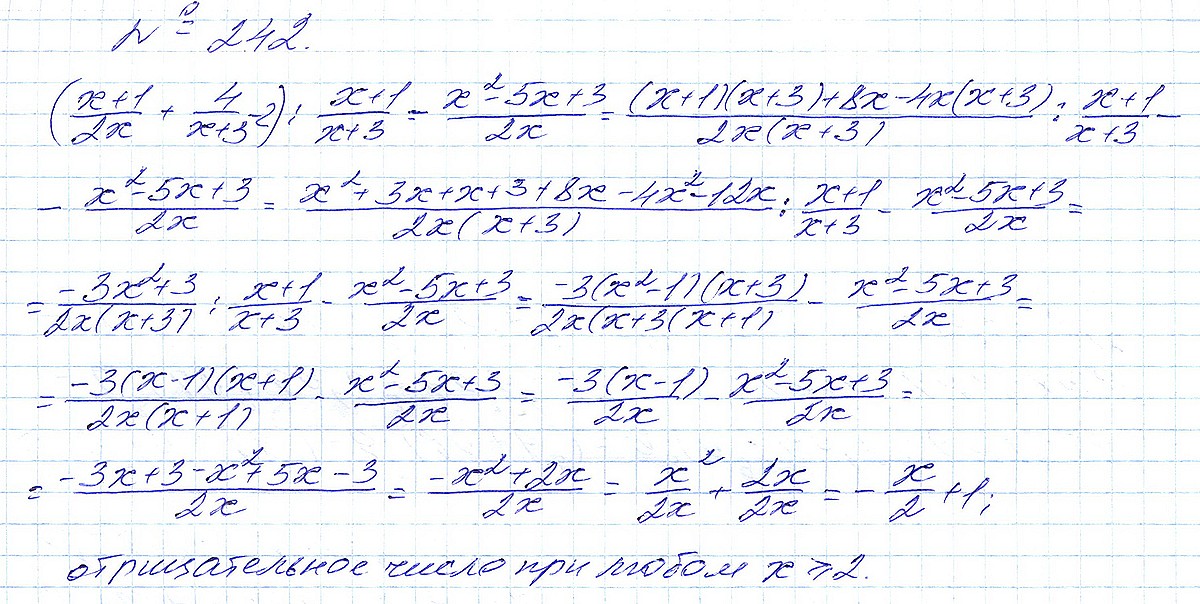 № 242.
((x+1)/(2x) + 4/(x+3) - 2) : (x+1)/(x+3) - (x²-5x+3)/(2x) = ((x+1)(x+3)+8x-4x(x+3))/(2x(x+3)) : (x+1)/(x+3) -
- (x²-5x+3)/(2x) = (x²+3x+x+3+8x-4x²-12x)/(2x(x+3)) : (x+1)/(x+3) - (x²-5x+3)/(2x) =
= (-3x²+3)/(2x(x+3)) : (x+1)/(x+3) - (x²-5x+3)/(2x) = (-3(x²-1)(x+3))/(2x(x+3(x+1)) - (x²-5x+3)/(2x) =
= (-3(x-1)(x+1))/(2x(x+1)) - (x²-5x+3)/(2x) = (-3(x-1))/(2x) - (x²-5x+3)/(2x) =
= (-3x+3-x²+5x-3)/(2x) = (-x²+2x)/(2x) = x²/(2x) + 2x/(2x) = - x/2 + 1;
отрицательное число при любом x ⩾ 2.